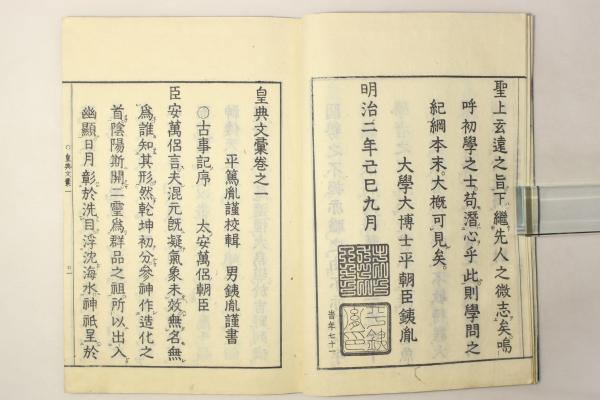 聖上玄遠之旨下繼先人之微志矣嗚
呼初學之士苟潛心乎此則學問之
紀綱本末大概可見矣
明治二年己巳九月
大學大博士平朝臣銕胤
當年七十一
皇典文彙卷之一
平篤胤謹校輯 男銕胤謹書
○古事記序 太安萬侶朝臣
臣安萬侶言夫混元既凝氣象未效無名無
爲誰知其形然乾坤初分參神作造化之
首陰陽斯開二靈爲群品之祖所以出入
幽顯日月彰於洗目浮沈海水神祇呈於
皇典文彙一